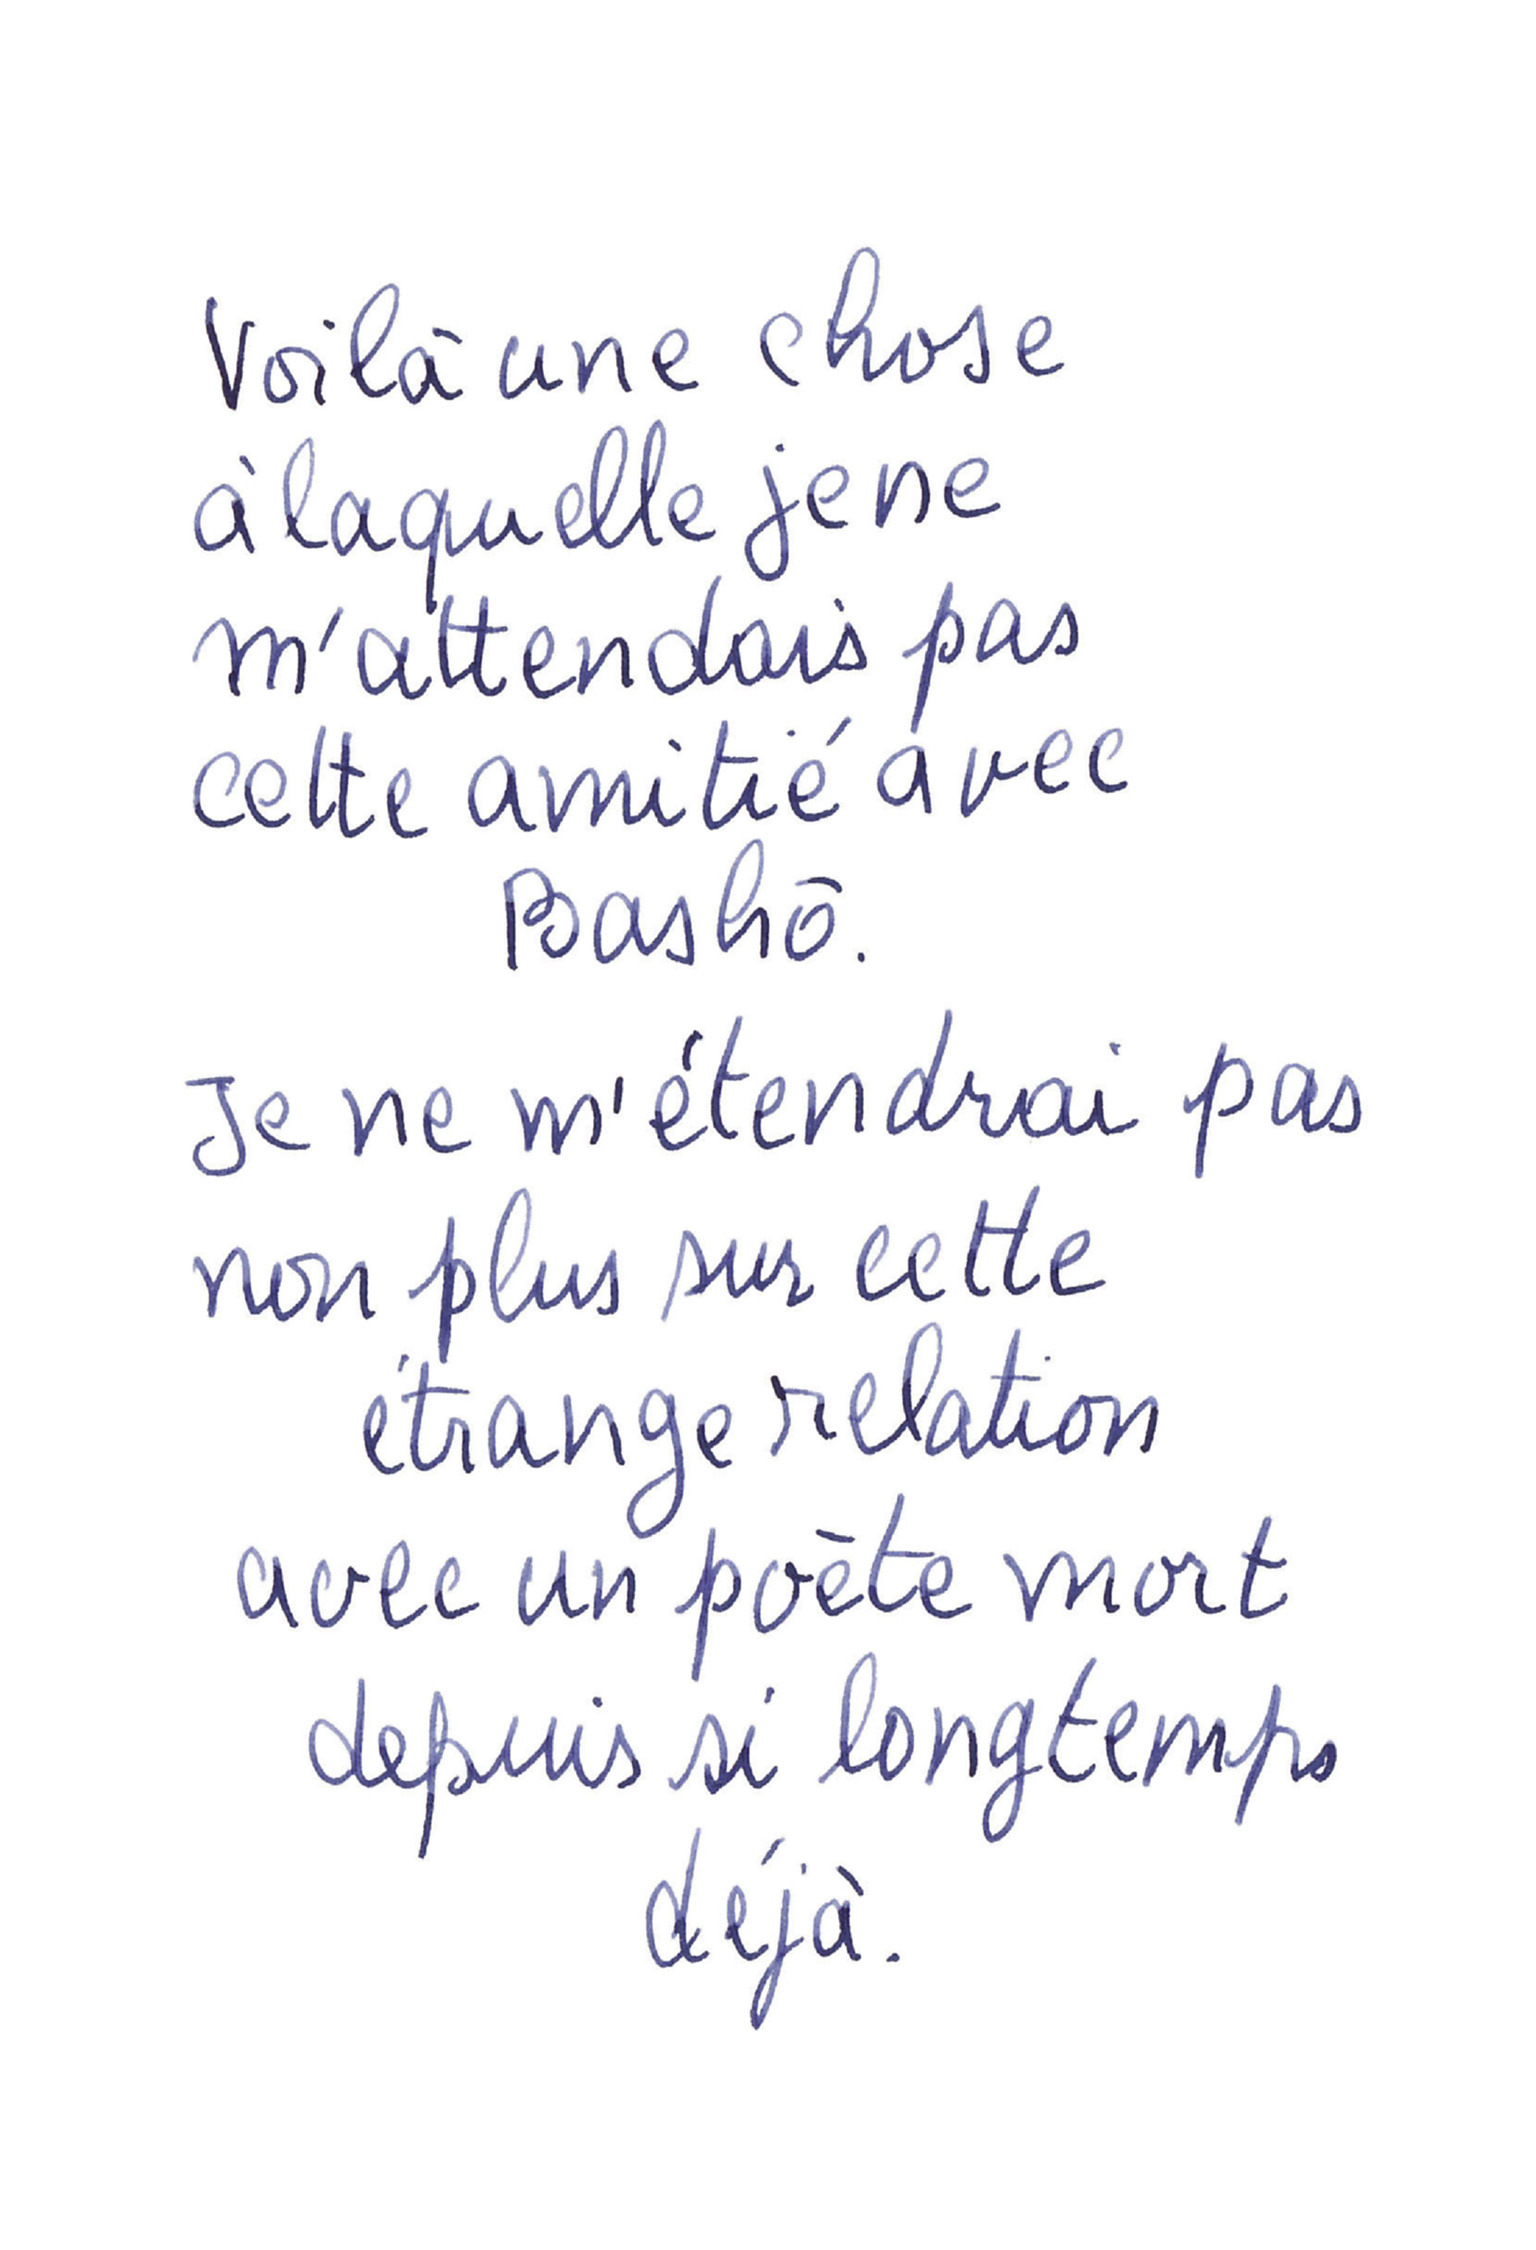 Voilà une chose
à laquelle je ne
m'attendais pas
cette amitié avec
Bashō.
Je ne m'étendrai pas
non plus sur cette
étrange relation
avec un poète mort
depuis si longtemps
déjà.